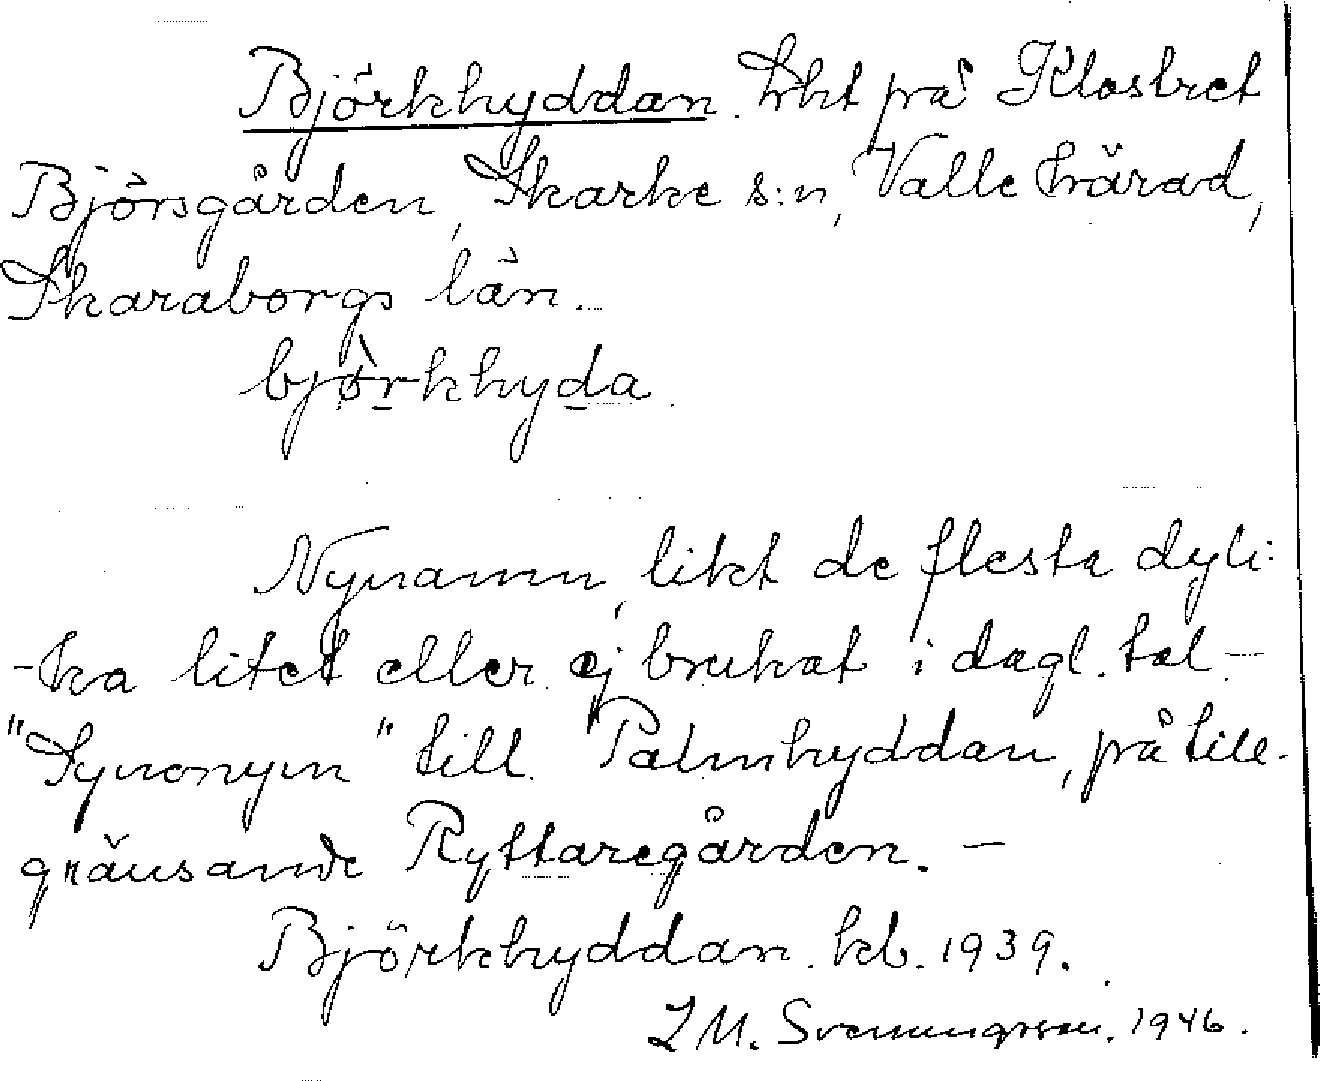 Björkhyddan. Lht på Klostret
Björsgården, Skarke s:n, Valle härad,
Skaraborgs län.
bjòrkhyda.
Nynamn, likt de flesta dyli-
-ka litet eller ej brukat i dagl. tal. -
"Synonym" till Palmhyddan, på till-
gränsande Ryttaregården. -
Björkhyddan. kb. 1939.
Svenungsson. 1946.